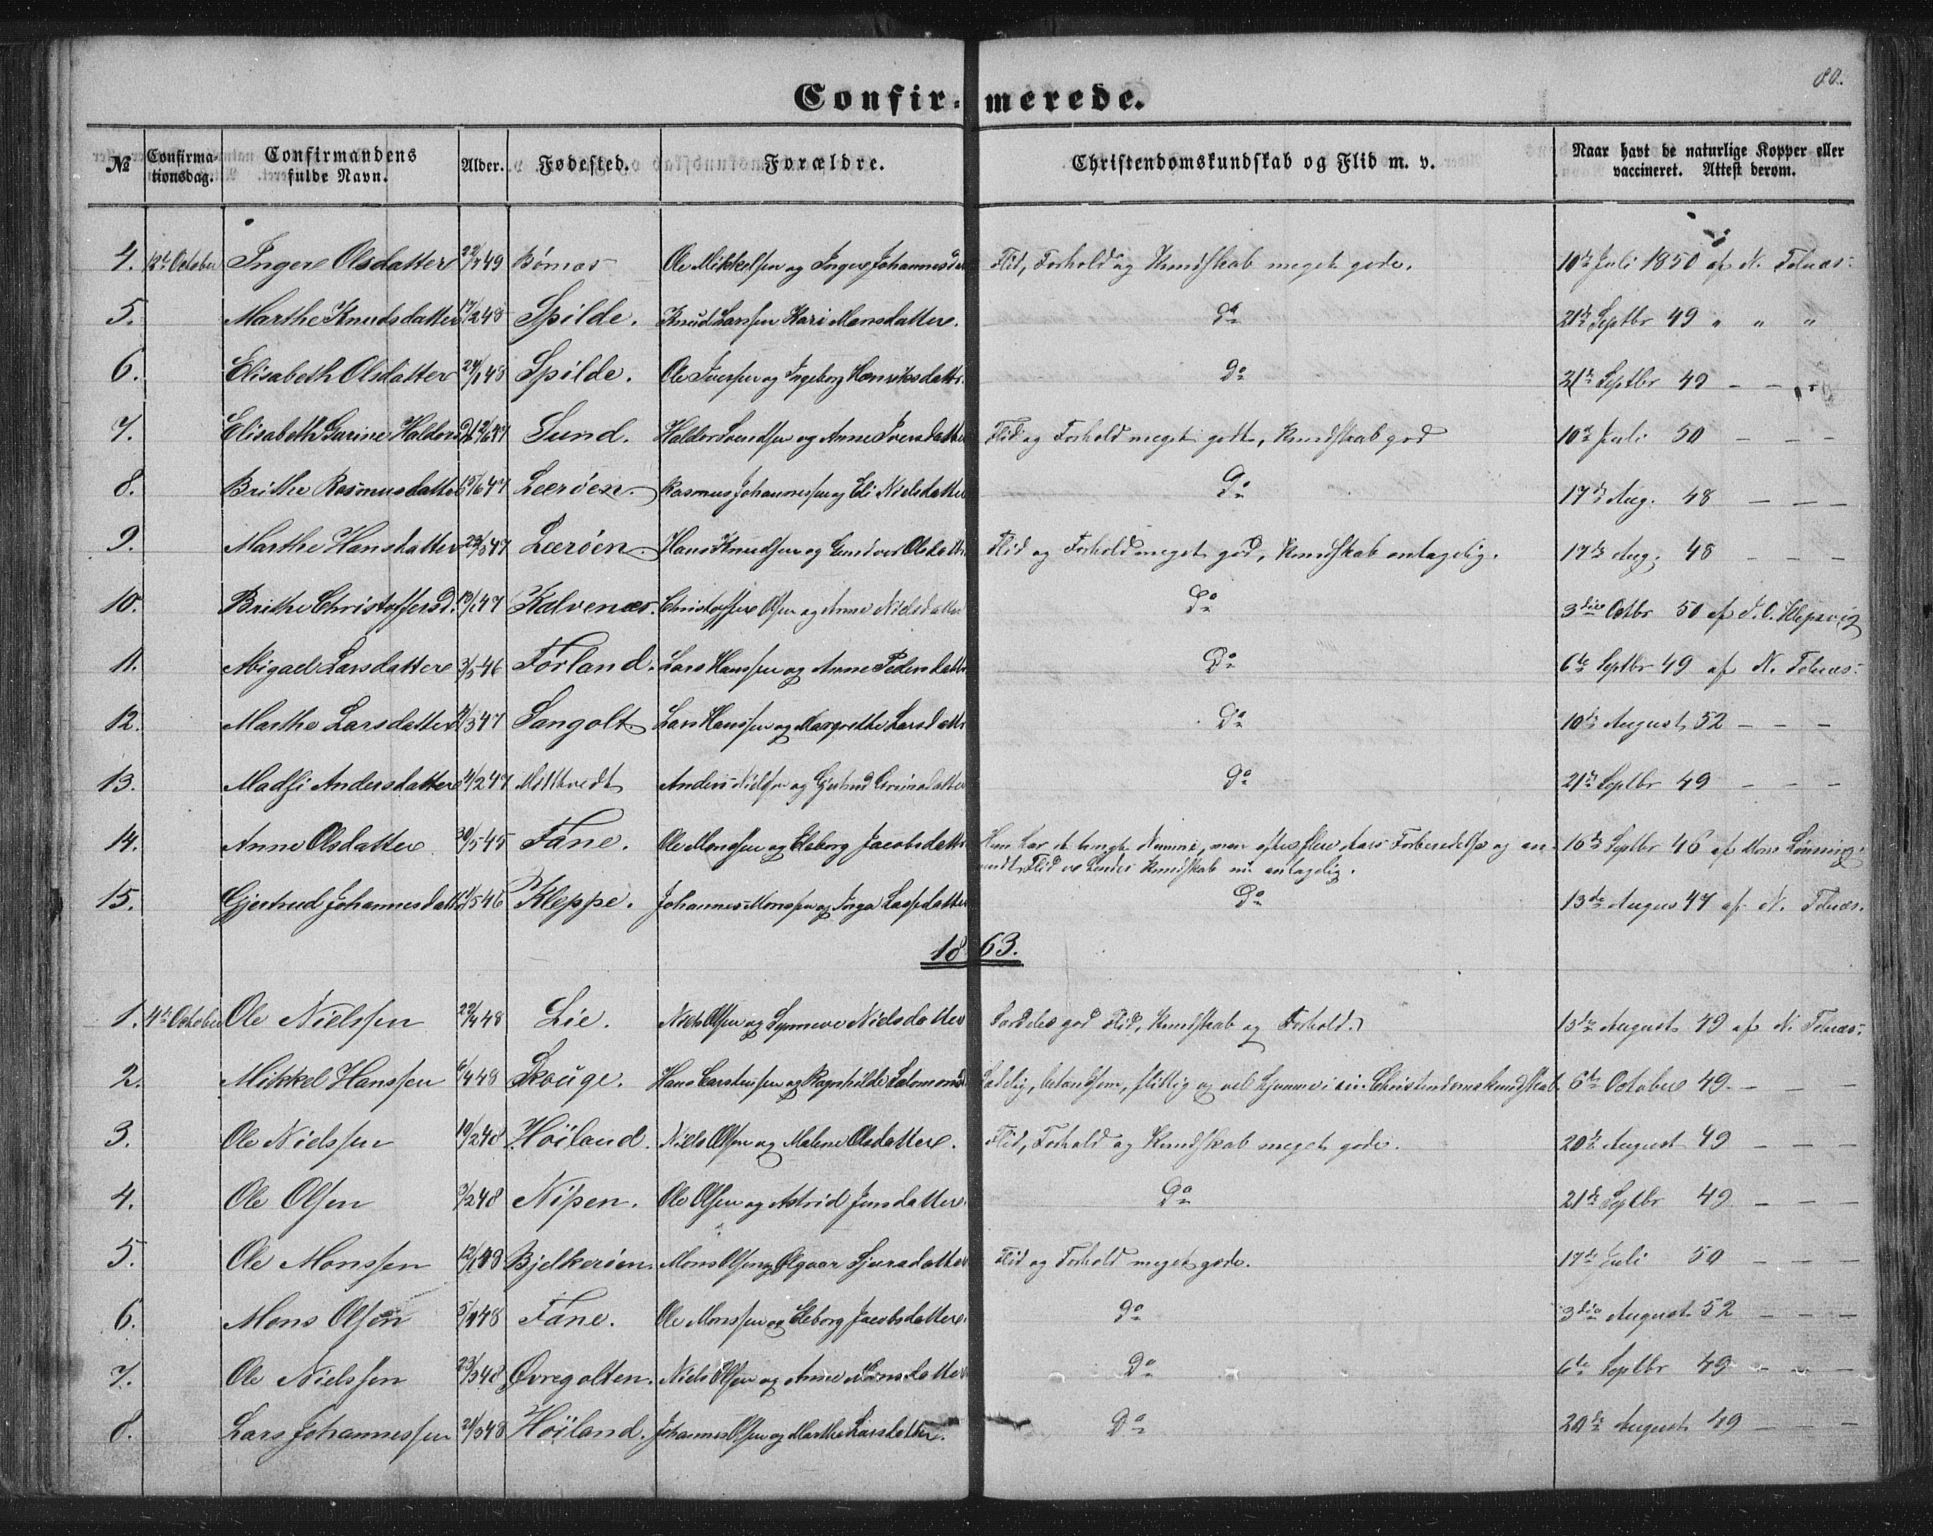 80.
Confir-merede.
№ Confirmationsdag. Confirmandens fulde Navn. Alder. Fødested. Forældre. Christendomskundskab og Flid m. v. Naar havt de naturlige Kopper eller vaccineret. Attest derom.
4. 12te October Inger Olsdatter 22/7 49 Børnæs Ole Mikkelsen og Inger Johannesd Flid, Forhold og Kundskab meget gode. 10de Juli 1850 af N. Telnæs.
5. Marthe Knudsdatter 17/2 48 Spilde. Knud Larssen Kari Monsdatter. Do 21de Septbr 49 " " "
6. Elisabeth Olsdatter 24/1 48 Spilde. Ole Iversen og Ingeborg Henriksdattr. Do 21de Septbr 49 — — "
7. Elisabeth Garine Haldorsd 12/6 47 Sund. Haldor Svendsen og Anne Iversdatter Flid og Forhold meget godt, Kundskab god 10de Juli 50 — — —
8. Brithe Rasmusdatter 15/6 47 Lerøen. Rasmus Johannessen og Eli Nielsdatter Do 17de Aug. 48 — — —
9. Marthe Hansdatter 23/5 47 Lerøen. Hans Knudsen og Gundvor Olsdattr Flid og Forhold meget god, Kundskab antagelig. 17de Aug. 48 — — —
10. Brithe Christoffersd. 13/1 47 Kalvenæs. Christoffer Olsen og Anne Nielsdatter Do 3die Octbr 50 af J. O. Klepsvig
11. Abigael Larsdatter 3/5 46 Førland. Lars Hanssen og Anne Pedersdattr Do 6te Septbr 49 af N. Telnæs.
12. Marthe Larsdatter /3 47 Sangolt. Lars Hanssen og Margrethe Larsdattr Do 10de August 52 — — —
13. Madsi Andersdatter 4/2 47 Anders Nilsen og Gjertrud Do 21de Septbr 49 — — —
14. Anne Olsdatter 30/5 45 Fane. Ole Monssen og Eleborg Jacobsdattr Hun har et tungt Nemme, men efter flere Aars Forberedelse og an- 16de Septbr 46 af Mons Lønning.
vendt Flid er hendes Kundskab nu antagelig.
15. Gjertrud Johannesdattr 11/5 46 Kleppe. Johannes Monsen og Inga Lassedatter Do 13de August 47 af N. Telnæs.
1863.
1. 4de October Ole Nielssen 29/4 48 Lie. Niels Olsen og Synneve Nielsdatter Særdeles god Flid, Kundskab og Forhold. 15de August 49 af N. Telnæs.
2. Mikkel Hanssen 6/4 48 Skouge. Hans Carstensen og Ragnhilde Salomonsd Sædelig, betænksom, flittig og vel hjemme i sin Christendomskundskab. 6te October 49 — —
3. Ole Nielssen 19/2 48 Høiland. Niels Olsen og Malene Olsdatter. Flid, Forhold og Kundskab meget gode. 20de August 49 — — —
4. Ole Olsen 3/2 48 Nipen. Ole Olsen og Astrid Jensdatter Do 21de Septbr 49 — — —
5. Ole Monssen 12/1 49 Bjelkerøen. Mons Olsen og Olgaar Sjursdatter Flid og Forhold meget gode. 17de Juli 50 — — —
6. Mons Olsen 5/1 48 Fane. Ole Monssen og Eleborg Jacobsdatter Do 3die August 52 — — —
7. Ole Nielssen 23/3 48 Øvregolten. Niels Olsen og Anne Monsdatter Do 6te Septbr 49 — — —
8. Lars Johannessen 21/3 48 Høiland. Johannes Olsen og Marthe Larsdatter. Do 20de August 49 — — —